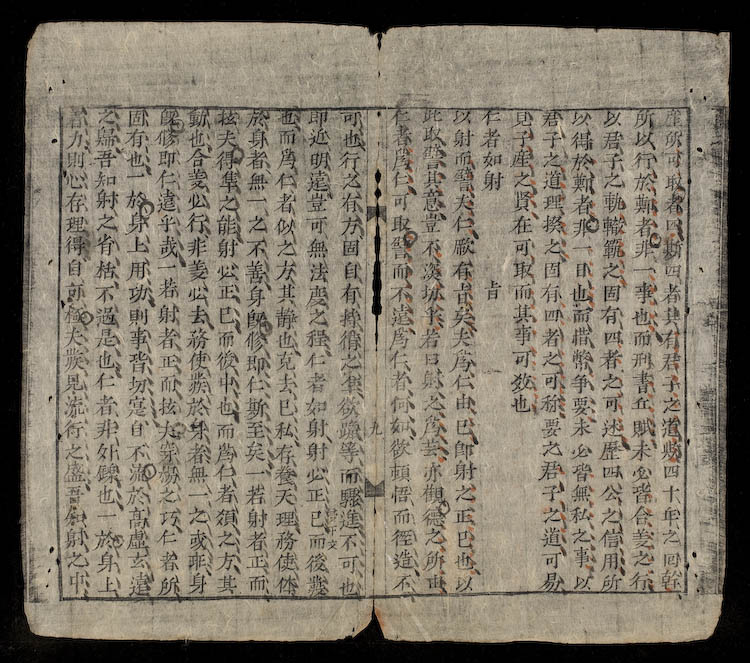 產所可取者四斯四者其有君子之道歟四十年之間幹
所以行於鄭者非一事也而刑書丘賦未必皆合美之行
以君子之軌轍範之固有四者之可述歷四公之信用所
以得於鄭者非一日也而惜幣爭要未必皆無私之事以
君子之道理揆之固有四者之可称要之君子之道可易
見子產之賢在可取而其事可数也
仁者如射
旨
以射而譬夫仁厥有旨矣夫為仁由己即射之正己也以
此取譬其意豈不深切乎若曰射之為芸亦觀德之所由
仁者為仁可取譬而不遠為仁者何如欲頓悟而徑造不
可也行之有方固自有持循之準欲躐等而驟進不可也
即近明遠豈可無法度之程仁者如射射必正己而後發
也而為仁者似之方其靜也克去己私存養天理務使体
於身者無一之不善身既修即仁斯至矣一若射者正而
抜夫得隼之能射必正己而後中也而為仁者須之方其
動也合義必行非義必去務使發於身者無一之或乖身
既修即仁遠乎哉一若射者正而抜夫穿楊之巧仁者所
固有也一於身上用功則事皆切寔自不流於高虛玄遠
之為吾知射之省栝不過是也仁者非外鑠也一於身上
着力則心存理得自可極夫發見流行之盛吾知射之中
九